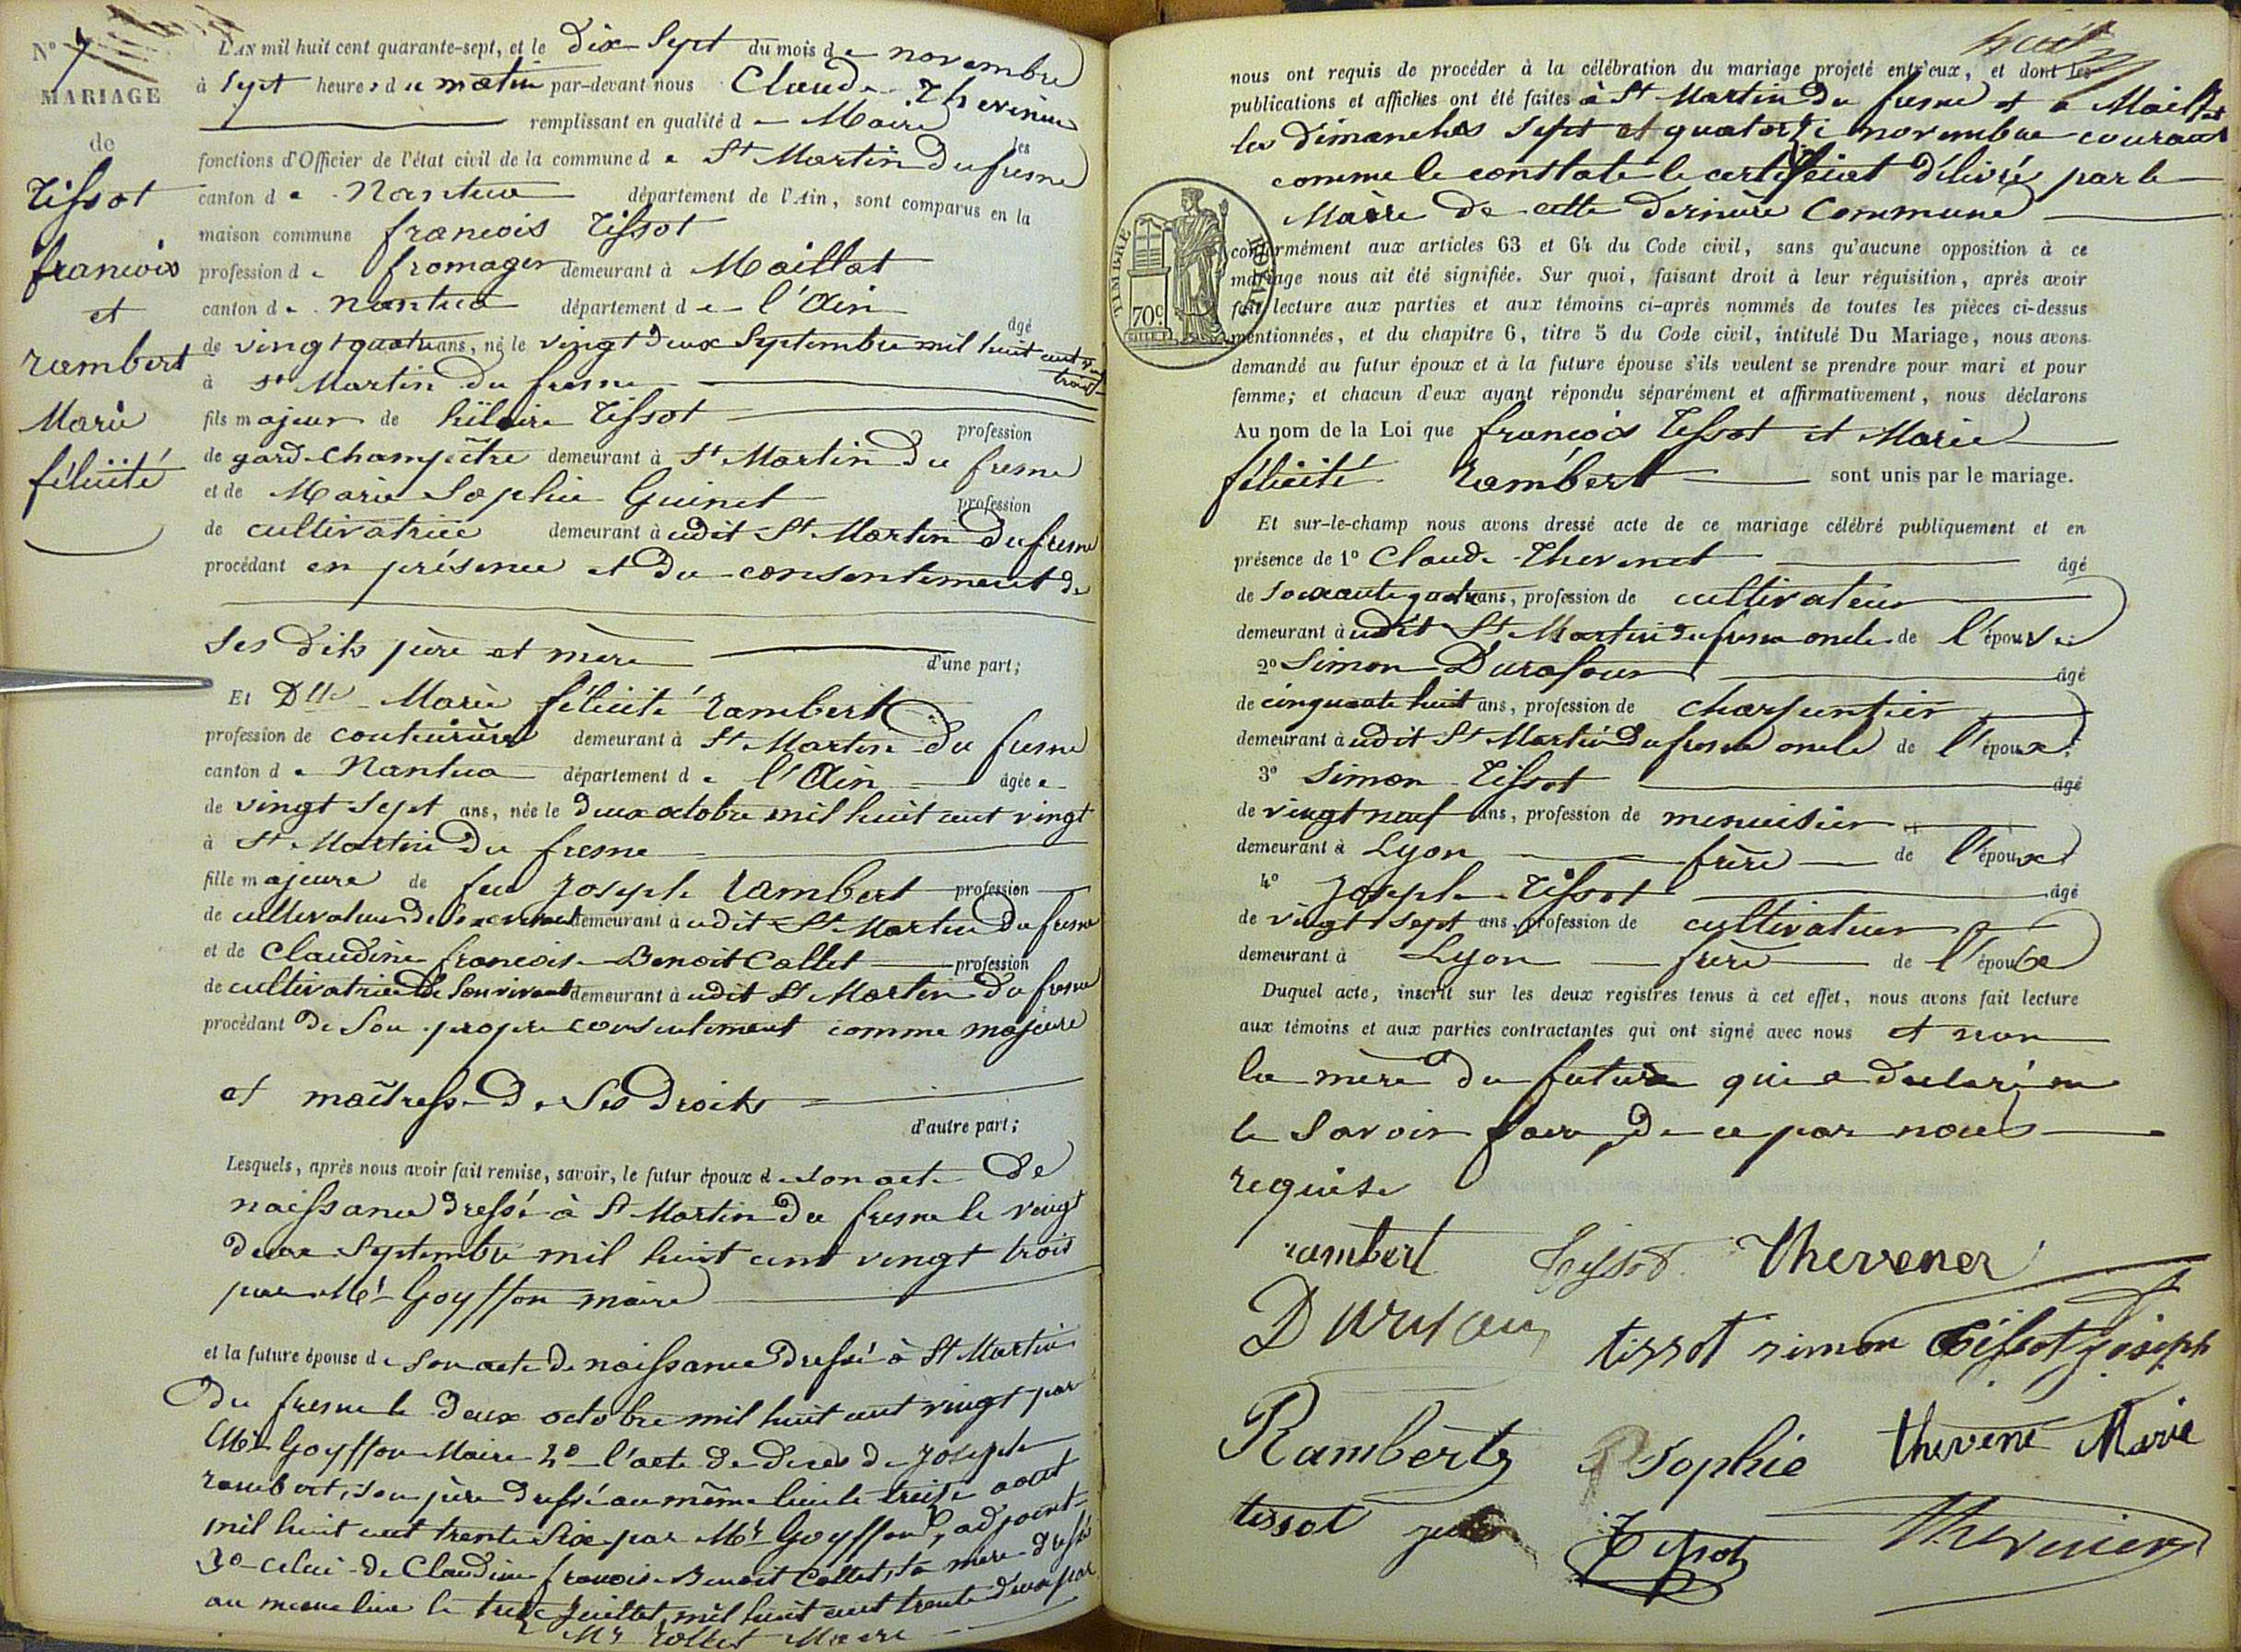 N° 7
MARIAGE
de
tissot
francois
et
rambert
Marie
félicité
L'AN mil huit cent quarante-sept, et le dix Sept du mois de novembre
à sept heures du matin par-devant nous Claude Thevenin
remplissant en qualité de Maire les
fonctions d'Officier de l'état civil de la commune de St Martin Du fresne
canton de Nantua département de l'Ain, sont comparus en la
maison commune francois Tissot
profession de fromager demeurant à Maillat
canton de nantua département de l'Ain âgé
de vingt quatre ans, né le vingt deux Septembre mil huit cent vingt
trois
à St Martin du fresne
fils majeur de hilaire Tissot profession
de garde champêtre demeurant à St Martin Du fresne
et de Marie Sophie Guinet profession
de cultivatrice demeurant à udit St Martin Du fresne
procédant en présence et du consentement de
ses dits père et mère d'une part;
Et Dlle Marie félicité rambert
profession de couturière demeurant à St Martin Du fresne
canton de Nantua département de l'Ain âgée
de vingt Sept ans, née le deux octobre mil huit cent vingt
à St Martin Du fresne
fille majeure de feu Joseph rambert profession
de cultivateur de Son vivant demeurant à udit St Martin Du fresne
et de Claudine francoise Benoit Collet profession
de cultivatrice de Son vivant demeurant à udit St Martin Du fresne
procédant De Son propre consentement comme majeure
et maîtresse De Ses Droits
d'autre part;
Lesquels, après nous avoir fait remise, savoir, le futur époux de son acte De
naissance dressé à St Martin Du fresne le vingt
deux Septembre mil huit cent vingt trois
par Mr Goyffon maire
et la future épouse de Son acte De naissance Dressé à St Martin
Du fresne le deux octobre mil huit cent vingt par
Mr Goyffon Maire 2° l'acte de décès de Joseph
rambert, son père dressé au même lieu le treize aout
mil huit cent trente Six par Mr Goyffon, adjoint
3° celui de Claudine francoise Benoit Collet, sa mère dressé
au même lieu le treize Juillet mil huit cent trente deux par
Mr Collet Maire
huit
nous ont requis de procéder à la célébration du mariage projeté entr'eux, et dont les
publications et affiches ont été faites à St Martin Du fresne et à Maillat
les Dimanches sept et quatorze novembre courant
comme le constate le certificat Délivré par le
Maire De cette Dernière Commune
TIMBRE ROYAL
70c
conformément aux articles 63 et 64 du Code civil, sans qu'aucune opposition à ce
mariage nous ait été signifiée. Sur quoi, faisant droit à leur réquisition, après avoir
fait lecture aux parties et aux témoins ci-après nommés de toutes les pièces ci-dessus
mentionnées, et du chapitre 6, titre 5 du Code civil, intitulé Du Mariage, nous avons
demandé au futur époux et à la future épouse s'ils veulent se prendre pour mari et pour
femme; et chacun d'eux ayant répondu séparément et affirmativement, nous déclarons
Au nom de la Loi que francois Tissot et Marie
félicité rambert sont unis par le mariage.
Et sur-le-champ nous avons dressé acte de ce mariage célébré publiquement et en
présence de 1° Claude Thevenet âgé
de Soixante quatre ans, profession de cultivateur
demeurant à udit St Martin du fresne oncle de l'épouse
2° Simon Durafour âgé
de cinquante huit ans, profession de charpentier
demeurant à udit St Martin Du fresne oncle de l'époux
3° Simon Tissot âgé
de vingt neuf ans, profession de menuisier
demeurant à Lyon frère de l'époux
4° Joseph Tissot âgé
de vingt Sept ans, profession de cultivateur
demeurant à Lyon frère de l'époux
Duquel acte, inscrit sur les deux registres tenus à cet effet, nous avons fait lecture
aux témoins et aux parties contractantes qui ont signé avec nous et non
la mère du futur qui a déclaré ne
le Savoir faire De ce par nous
requise
rambert Tissot Thevener
Durafour
tissot simon Tissot joseph
Ramberts Sophie thevene Marie
tissot
Tissot Thevenin